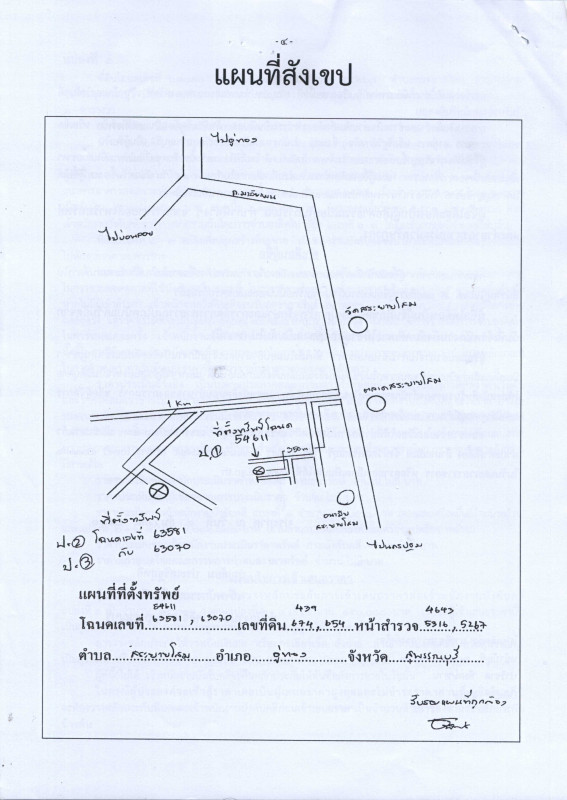 -๔-
แผนที่สังเขป
ไปอู่ทอง
ถ.มาลัยแมน
ไปบ่อพลอย
วัดสระยายโสม
ตลาดสระยายโสม
1 Km
ที่ตั้งทรัพย์โฉนด
54611
ป.①
350 m
อนามัย
สระยายโสม
ไปนครปฐม
ที่ตั้งทรัพย์
ป.② โฉนดเลขที่ 63581
กับ
ป.③ 63070
แผนที่ที่ตั้งทรัพย์
54611 439 4643
โฉนดเลขที่ 63581, 63070 เลขที่ดิน 674, 654 หน้าสำรวจ 5316, 5267
ตำบล สระยายโสม อำเภอ อู่ทอง จังหวัด สุพรรณบุรี
รับรองแผนที่ถูกต้อง